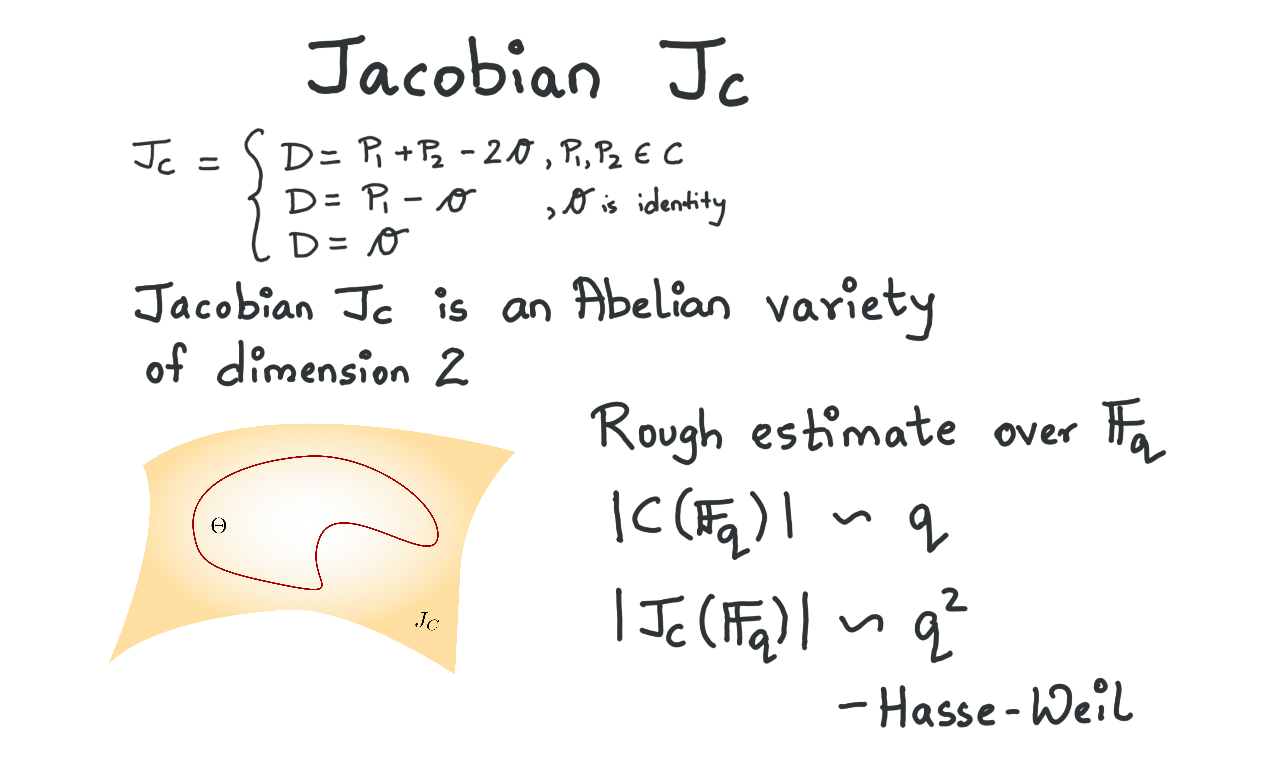 Jacobian J_C
J_C = { D = P₁ + P₂ - 2𝒪, P₁, P₂ ∈ C
D = P₁ - 𝒪 , 𝒪 is identity
D = 𝒪
Jacobian J_C is an Abelian variety
of dimension 2
Rough estimate over 𝔽_q
|C(𝔽_q)| ∽ q
Θ
|J_C(𝔽_q)| ∽ q²
J_C
-Hasse-Weil